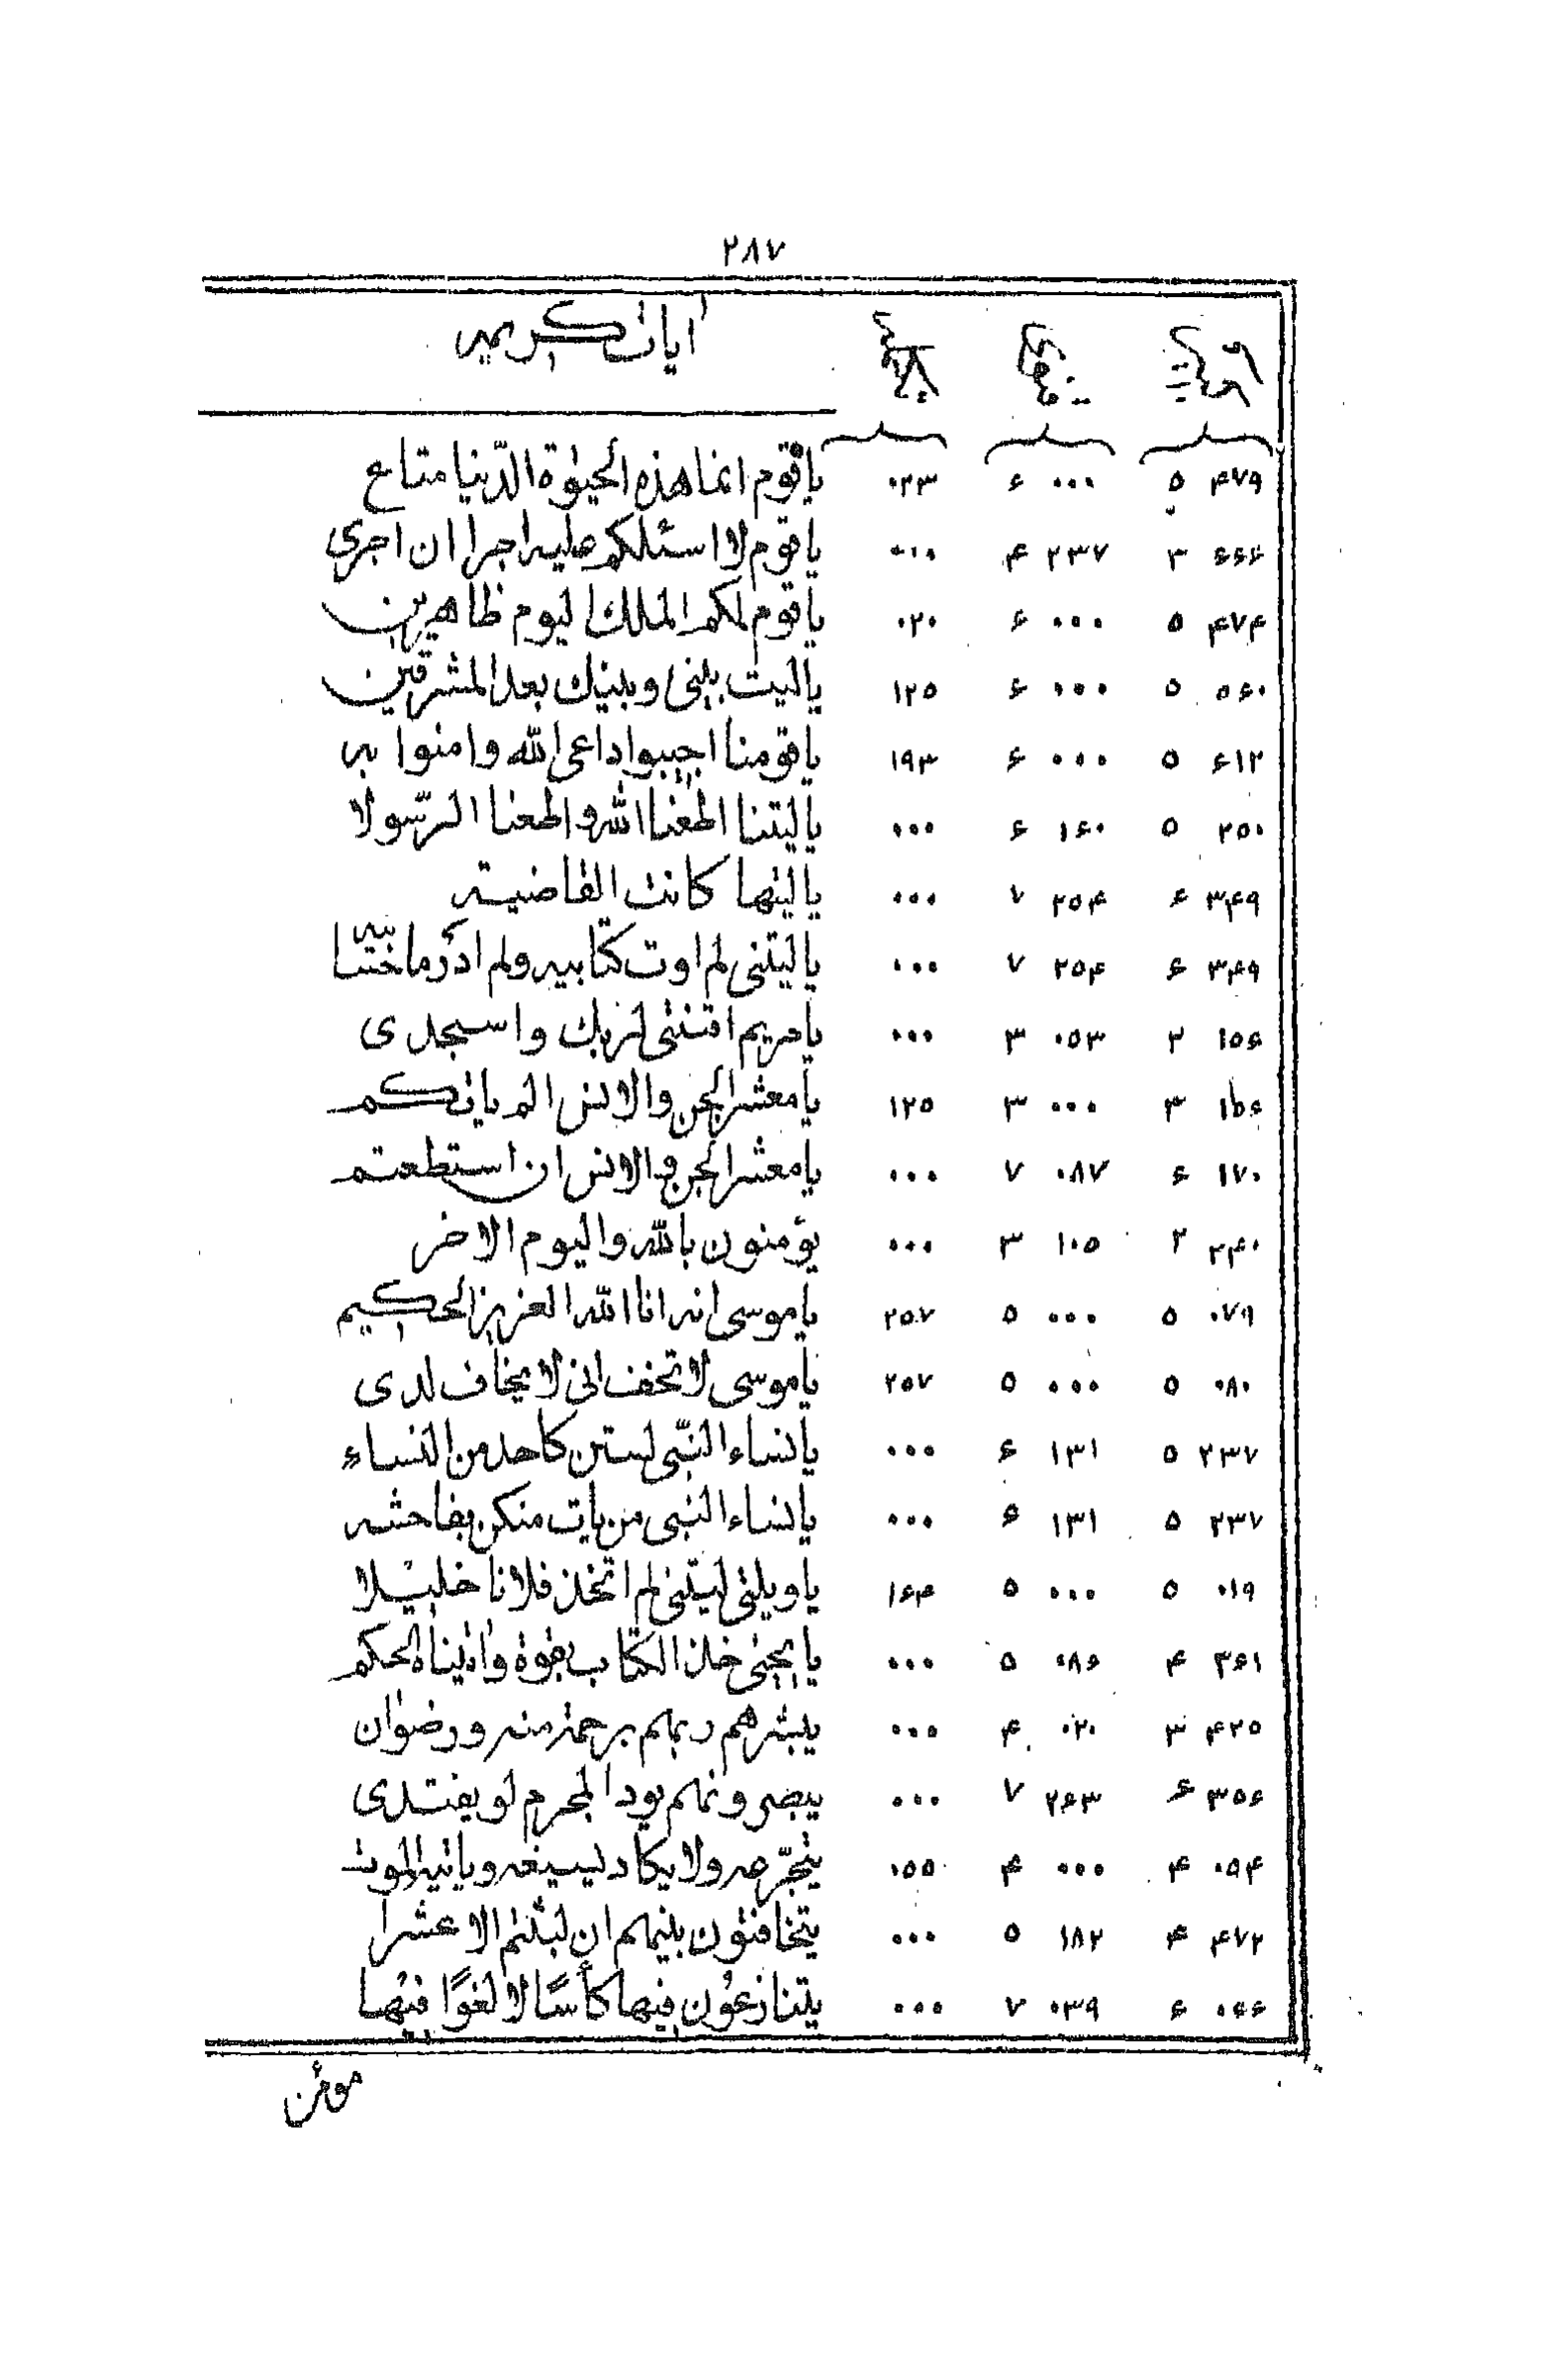 ۲۸۷
ایات کریمه
۴۷۹ ۵ ۰۰۰ ۶ ۰۲۳ یاقوم انما هذه الحیوٰة الدّنیا متاع
۶۶۶ ۳ ۲۳۷ ۴ ۰۰۰ یاقوم لا اسئلکم علیه اجرا ان اجری
۴۷۴ ۵ ۰۰۰ ۶ ۰۲۰ یاقوم لکم الملک الیوم ظاهرین
۵۶۰ ۵ ۰۰۰ ۶ ۱۲۵ یالیت بینی وبینک بعد المشرقین
۶۱۲ ۵ ۰۰۰ ۶ ۱۹۳ یاقومنا اجیبوا داعی الله وامنوا به
۲۵۰ ۵ ۱۶۰ ۶ ۰۰۰ یالیتنا اطعنا الله واطعنا الرّسولا
۳۴۹ ۶ ۲۵۴ ۷ ۰۰۰ یالیتها کانت القاضیة
۳۴۹ ۶ ۲۵۴ ۷ ۰۰۰ یالیتنی لم اوت کتابیه ولم ادر ما حسابیه
۱۵۶ ۲ ۰۵۳ ۳ ۰۰۰ یامریم اقنتی لربک واسجدی
۱۵۶ ۳ ۰۰۰ ۳ ۱۲۵ یامعشر الجن والانس الم یاتکم
۱۷۰ ۶ ۰۸۷ ۷ ۰۰۰ یامعشر الجن والانس ان استطعتم
۲۴۰ ۲ ۱۰۵ ۳ ۰۰۰ یؤمنون بالله والیوم الاخر
۰۷۹ ۵ ۰۰۰ ۵ ۲۵۷ یاموسی انه انا الله العزیز الحکیم
۰۸۰ ۵ ۰۰۰ ۵ ۲۵۷ یاموسی لاتخف انی لا یخاف لدی
۲۳۷ ۵ ۱۳۱ ۶ ۰۰۰ یانساء النّبی لستن کاحد من النساء
۲۳۷ ۵ ۱۳۱ ۶ ۰۰۰ یانساء النبی من یات منکن بفاحشه
۰۱۹ ۵ ۰۰۰ ۵ ۱۶۴ یاویلتی لیتنی لم اتخذ فلانا خلیلا
۳۶۱ ۴ ۰۸۶ ۵ ۰۰۰ یایحیی خذ الکتاب بقوة واتیناه الحکم
۴۲۵ ۳ ۰۲۰ ۴ ۰۰۰ یبشرهم ربهم برحمة منه ورضوان
۳۵۶ ۶ ۲۶۳ ۷ ۰۰۰ یبصرونهم یود المجرم لو یفتدی
۰۹۴ ۴ ۰۰۰ ۴ ۱۵۵ یتجرّعه ولا یکاد یسیغه ویاتیه الموت
۴۷۲ ۴ ۱۸۲ ۵ ۰۰۰ یتخافتون بینهم ان لبثتم الا عشرا
۰۶۶ ۶ ۰۳۹ ۷ ۰۰۰ یتنازعون فیها کأسًا لا لغوًا فیها